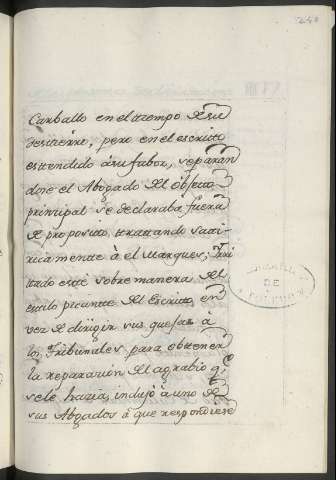 Carballo en el tiempo de su
destierro, pero en el escrito
estendido à su fabor, separan
dose el Abogado del obgeto
principal se declaraba fuera
de proposito, tratando sati
ricamente à el Marques; Irri
tado este sobre manera del
estilo picante del Escrito, en
vez de dirigir sus quejas à
los Tribunales para obtener
la reparazion del agrabio q.e
se le hazia, indujo à uno de
sus Abogados à que respondiese